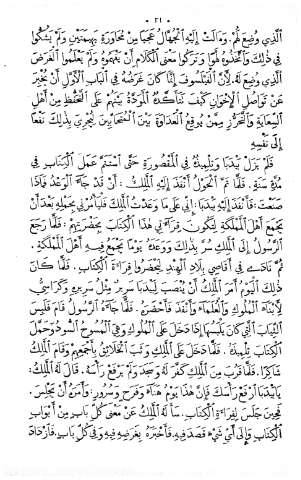 ٢١
الَّذِي وُضِعَ لَهُمْ وَمَالَتْ إِلَيْهِ الْجُهَّالُ عَجَبًا مِنْ مُحَاوَرَةِ بَهِيمَتَيْنِ وَلَمْ يَشُكُّوا
فِي ذٰلِكَ وَاتَّخَذُوهُ لَهْوًا وَتَرَكُوا مَعْنَى الْكَلَامِ أَنْ يَفْهَمُوهُ وَلَمْ يَعْلَمُوا الْغَرَضَ
الَّذِي وُضِعَ لَهُ. لِأَنَّ الْفَيْلَسُوفَ إِنَّمَا كَانَ غَرَضُهُ فِي الْبَابِ الْأَوَّلِ أَنْ يُخْبِرَ
عَنْ تَوَاصُلِ الْإِخْوَانِ كَيْفَ تَتَأَكَّدُ الْمَوَدَّةُ بَيْنَهُمْ عَلَى التَّحَفُّظِ مِنْ أَهْلِ
السِّعَايَةِ وَالتَّحَرُّزِ مِمَّنْ يُوقِعُ الْعَدَاوَةَ بَيْنَ الْمُتَحَابَّيْنِ لِيَجُرَّ بِذٰلِكَ نَفْعًا
إِلَى نَفْسِهِ
فَلَمْ يَزَلْ بَيْدَبَا وَتِلْمِيذُهُ فِي الْمَقْصُورَةِ حَتَّى اسْتَتَمَّ عَمَلُ الْكِتَابِ فِي
مُدَّةِ سَنَةٍ. فَلَمَّا تَمَّ الْحَوْلُ أَنْفَذَ إِلَيْهِ الْمَلِكُ: أَنْ قَدْ جَاءَ الْوَعْدُ فَمَاذَا
صَنَعْتَ: فَأَنْفَذَ إِلَيْهِ بَيْدَبَا: إِنِّي عَلَى مَا وَعَدْتُ الْمَلِكَ فَلْيَأْمُرْنِي بِحَمْلِهِ بَعْدَ أَنْ
يَجْمَعَ أَهْلَ الْمَمْلَكَةِ لِتَكُونَ قِرَاءَتِي هٰذَا الْكِتَابَ بِحَضْرَتِهِمْ: فَلَمَّا رَجَعَ
الرَّسُولُ إِلَى الْمَلِكِ سُرَّ بِذٰلِكَ وَوَعَدَهُ يَوْمًا يَجْمَعُ فِيهِ أَهْلَ الْمَمْلَكَةِ.
ثُمَّ نَادَى فِي أَقَاصِي بِلَادِ الْهِنْدِ لِيَحْضُرُوا قِرَاءَةَ الْكِتَابِ. فَلَمَّا كَانَ
ذٰلِكَ الْيَوْمُ أَمَرَ الْمَلِكُ أَنْ يُنْصَبَ لِبَيْدَبَا سَرِيرٌ مِثْلُ سَرِيرِهِ وَكَرَاسِيُّ
لِأَبْنَاءِ الْمُلُوكِ وَالْعُلَمَاءِ وَأَنْفَذَ فَأَحْضَرَهُ. فَلَمَّا جَاءَهُ الرَّسُولُ قَامَ فَلَبِسَ
الثِّيَابَ الَّتِي كَانَ يَلْبَسُهَا إِذَا دَخَلَ عَلَى الْمُلُوكِ وَهِيَ الْمُسُوحُ السُّودُ وَحَمَّلَ
الْكِتَابَ تِلْمِيذَهُ. فَلَمَّا دَخَلَ عَلَى الْمَلِكِ وَثَبَ الْخَلَائِقُ بِأَجْمَعِهِمْ وَقَامَ الْمَلِكُ
شَاكِرًا. فَلَمَّا قَرُبَ مِنَ الْمَلِكِ كَفَّرَ لَهُ وَسَجَدَ وَلَمْ يَرْفَعْ رَأْسَهُ. قَالَ لَهُ الْمَلِكُ:
يَا بَيْدَبَا ارْفَعْ رَأْسَكَ فَإِنَّ هٰذَا يَوْمُ هَنَاءَةٍ وَفَرَحٍ وَسُرُورٍ: وَأَمَرَهُ أَنْ يَجْلِسَ.
فَحِينَ جَلَسَ لِقِرَاءَةِ الْكِتَابِ. سَأَلَهُ الْمَلِكُ عَنْ مَعْنَى كُلِّ بَابٍ مِنْ أَبْوَابِ
الْكِتَابِ وَإِلَى أَيِّ شَيْءٍ قَصَدَ فِيهِ. فَأَخْبَرَهُ بِغَرَضِهِ فِيهِ وَفِي كُلِّ بَابٍ. فَازْدَادَ